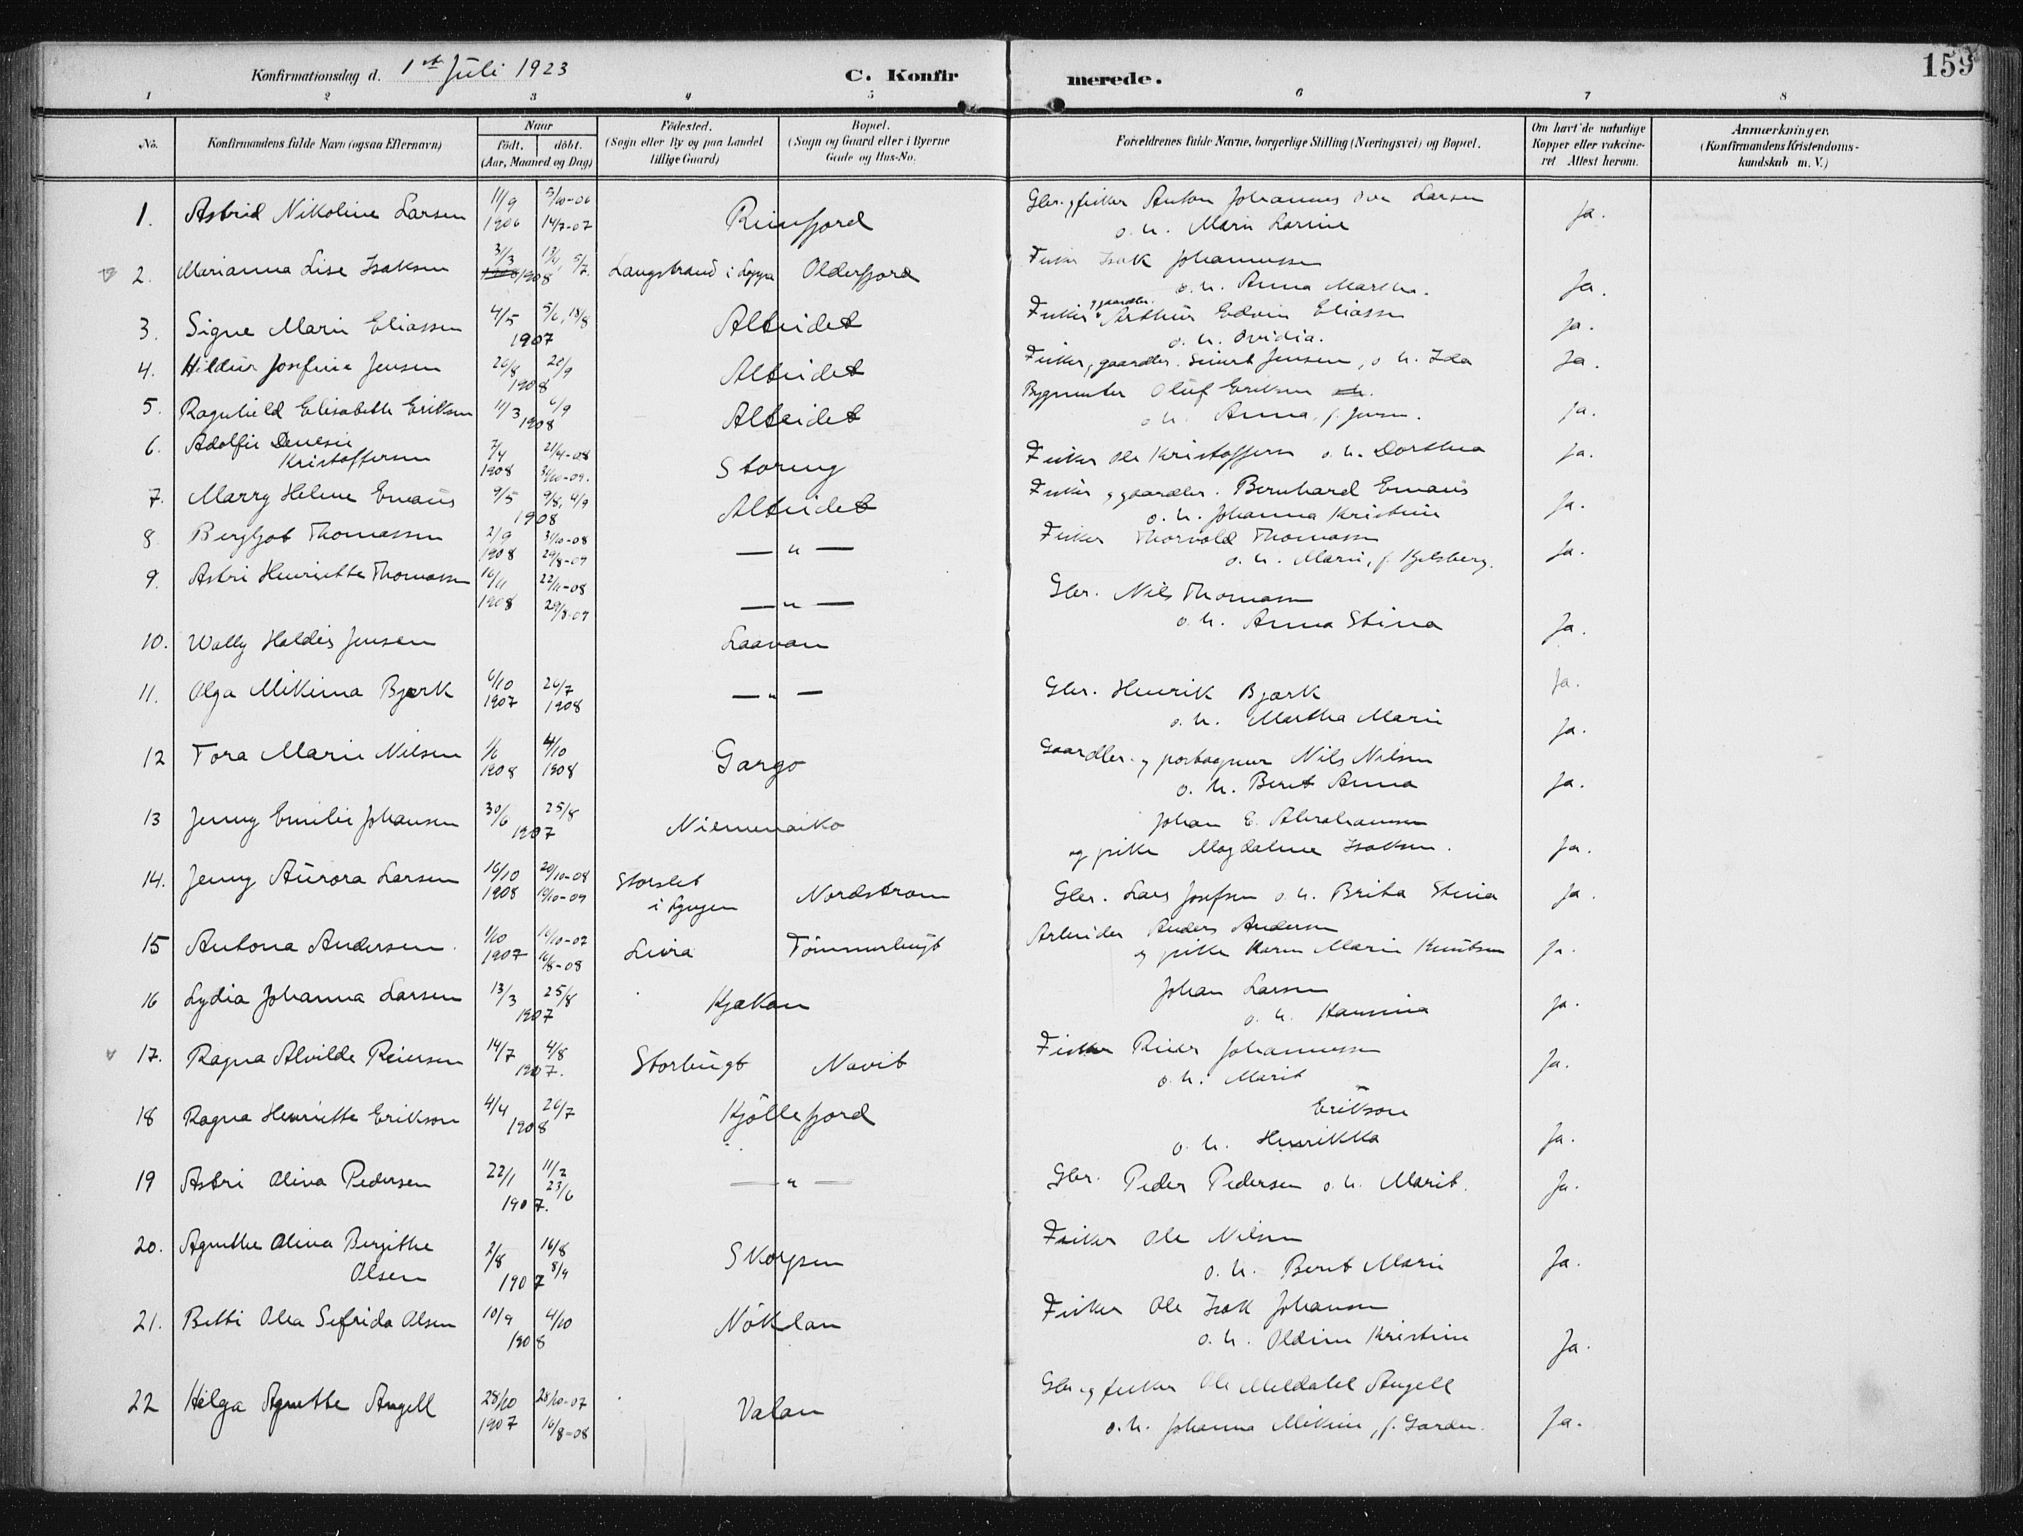 159
Konfirmationsdag d. 1st Juli 1923
C. Konfirmerede.
1 2 3 4 5 6 7 8
No.
Konfirmandens fulde Navn (ogsaa Efternavn)
Naar
født. døbt.
(Aar, Maaned og Dag)
Fødested.
(Sogn eller By og paa Landet
tillige Gaard)
Bopæl.
(Sogn og Gaard eller i Byerne
Gade og Hus-No.
Forældrenes fulde Navne, borgerlige Stilling (Næringsvei) og Bopæl.
Om havt de naturlige
Kopper eller vakcine-
ret Attest herom.
Anmærkninger.
(Konfirmandens Kristendoms-
kundskab m. V.)
1. Astrid Nikoline Larsen 11/9 1906 5/10-06 14/7-07 Reinfjord Gbr. og fisker Anton Johannes Larsen
o. h. Marie Larine Ja.
2. Marianna Lise Isaksen 3/3 1908 Langstrand i Loppa Olderfjord Fisker Isak Johannessen
o. h. Anna Martha. Ja.
3. Signe Marie Eliassen 4/5 1907 5/6, 18/8 Alteidet Fisker og gaardbr. Arthur Edvin Eliassen
o. h. Ovidia. Ja.
4. Hildur Josefine Jensen 26/8 20/9 1908 Alteidet Fisker, gaardbr. Sivert Jensen, o. h. Ida Ja.
5. Ragnhild Elisabeth Eriksen 11/3 6/9 1908 Alteidet Bygmester Oluf Eriksen
o. h. Anna, f. Jensen. Ja.
6. Adolfie Denesie
Kristoffersen 7/4 1908 21/4-08 31/10-09. Storeng Fisker Ole Kristoffersen o. h. Dorthea Ja.
7. Marry Helene Emaus 9/5 9/8, 4/9 1908 Alteidet Fisker og gaardbr. Bernhard Emaus
o. h. Johanna Kristine Ja.
8. Bergljot Thomassen 2/9 1908 31/10-08 29/8-09 — " — Fisker Thorvold Thomassen
o. h. Marie, f. Kjelsberg. Ja.
9. Astri Henriette Thomassen 16/11 1908 22/11-08 29/8-09 — " — Gbr. Nils Thomassen
o. h. Anna Stina Ja.
10. Wally Haldis Jensen Laavan Ja.
11. Olga Mikima Bjørk 6/10 1907 26/7 1908 — " — Gbr. Henrik Bjørk
o. h. Martha Marie Ja.
12 Tora Marie Nilsen 1/6 1908 4/10 1908 Gargo Gaardbr. og postaapner Nils Nilsen
o. h. Berit Anna Ja.
13 Jenny Emilie Johansen 30/6 25/8 1907 Niemenaiko Johan E. Abrahamsen
og pike Magdalene Isaksen. Ja.
14. Jenny Aurora Larsen 16/10 1908 20/10-08 10/10-09 Storslet
i Lyngen Nordstrøm Gbr. Lars Josefsen o. h. Brita Stina Ja.
15 Antona Andersen. 1/10 1907 16/10-07 16/8-08 Livia Tømmerbugt Arbeider Anders Andersen
og pike Karen Marie Knutsen Ja.
16 Lydia Johanna Larsen 13/3 25/8 1907 Kjækan Johan Larsen
o. h. Hansina Ja.
17. Ragna Alvilde Reiersen 14/7 4/8 1907. Storbugt Navit Fisker Reier Johannessen
o. h. Marit Ja.
18 Ragna Henriette Erikson 4/4 26/7 1908 Kjöllefjord Erikson
o. h. Henrikka Ja.
19 Astri Oliva Pedersen 22/1 11/2 23/6 1907. — " — Gbr. Peder Pedersen o. h. Marit. Ja.
20. Agnethe Oliva Bergithe
Olsen 2/8 16/8 8/9 1907 Skorpen Fisker Ole Nilsen
o. h. Berit Marie Ja.
21. Betti Olea Sefrida Olsen 10/9 4/10 1908 Nöklan Fisker Ole Isak Johansen
o. h. Oldine Kristine Ja.
22 Helga Agnethe Angell 28/10 1907 28/10-07 16/8-08 Valan Gbr. og fisker Ole Meldahl Angell
o. h. Johanna Mikine, f. Garden. Ja.